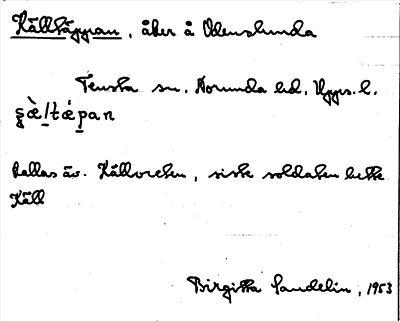 Källtäppan, åker å Odenslunda
Tensta sn. Norunda hd. Upps. l.
ʂæ̀ltǽpan
kallas äv. Källvreten, siste soldaten hette
Käll
Birgitta Sandelin, 1953